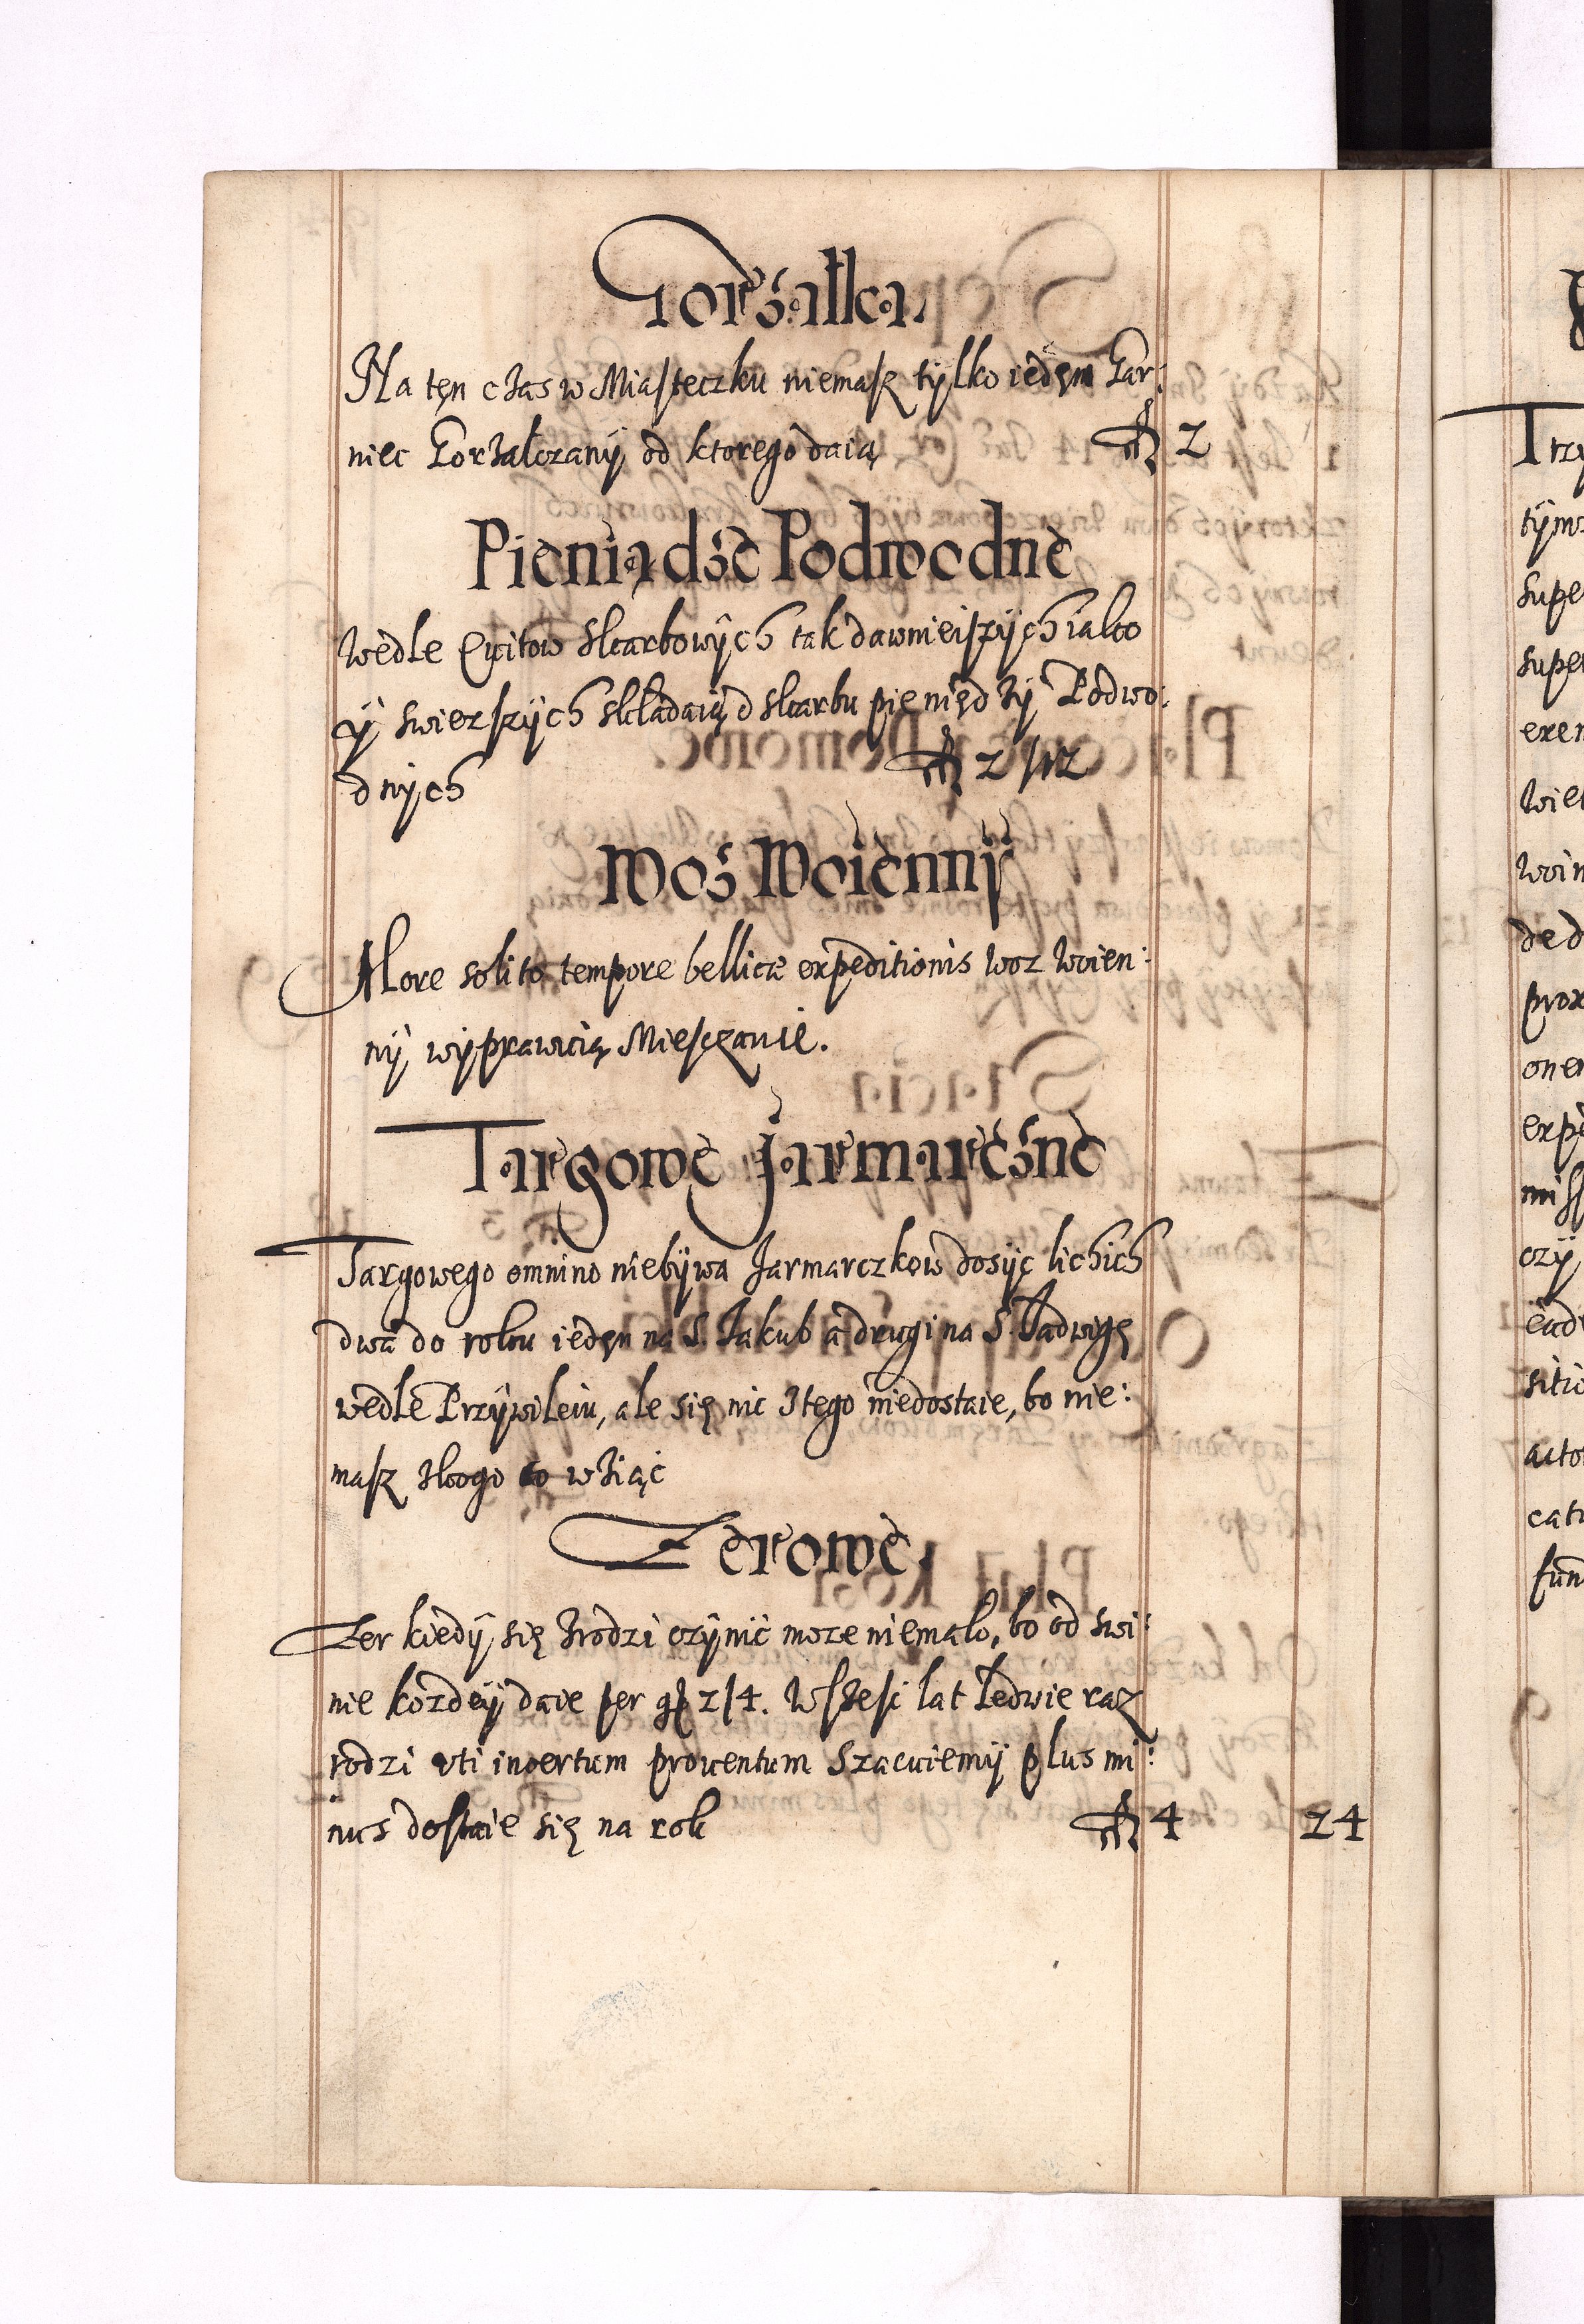 Gorzałka
Na tęn czas w Miasteczku niemasz tylko iedęn Gar:
niec Gorzałczany od ktorego daią fl 2
Pieniądze Podwodne
Wedle Qwitow skarbowych tak dawnieiszych iako
y swierszych składaią d skarbu pieniędzy Podwo:
dnych fl 2 /12
Woz Woienny
More solito tempore bellicæ expeditionis woz woien:
ny wyprawuią Miesczanie.
Targowe Jarmarczne
Targowego omnino niebywa Jarmarczkow dosyc lichich
dwa do roku iedęn na S. Jakub a drugi na S. Jadwigę
wedle Przywileiu, ale się nic ztego niedostaie, bo nie:
masz zkogo co wziąć
Zerowe
Zer kiedy się zrodzi czynić moze niemało, bo od swi:
nie kozdey daie per gr 2/4. W szesc lat ledwie raz
rodzi vti incertum prouentum szacuiemy plus mi:
nus dostaie się na rok fl 4 24